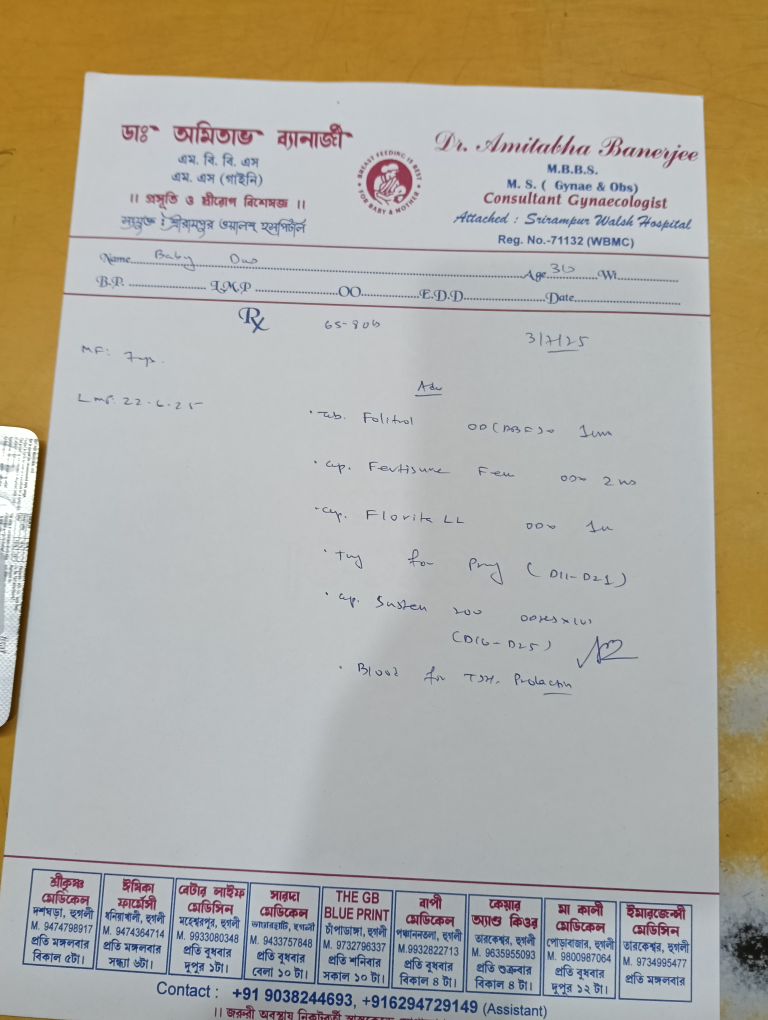 ডাঃ অমিতাভ ব্যানার্জী
এম. বি. বি. এস
এম. এস (গাইনি)
।। প্রসূতি ও স্ত্রীরোগ বিশেষজ্ঞ ।।
সংযুক্ত : শ্রীরামপুর ওয়ালশ্ হসপিটাল
BREAST FEEDING IS BEST FOR BABY & MOTHER
Dr. Amitabha Banerjee
M.B.B.S.
M. S. ( Gynae & Obs)
Consultant Gynaecologist
Attached : Srirampur Walsh Hospital
Reg. No.-71132 (WBMC)
Name Baby Das Age 30 Wt
B.P. L.M.P OO E.D.D Date
Rx
3/7/25
MF: 7 yrs.
LMP. 22-6-25
Adv
Tab. Folitrol
cap. Fertisure Fem
cap. Florita LL
Try for Preg (D11-D21)
cap. Susten 200
(D16-D25)
Blood for TSH. Prolactin
শ্রীকৃষ্ণ মেডিকেল
দশঘড়া, হুগলী
M. 9474798917
প্রতি মঙ্গলবার
বিকাল ৫টা।
ঈশিকা ফার্মেসী
ধনিয়াখালী, হুগলী
M. 9474364714
প্রতি মঙ্গলবার
সন্ধ্যা ৬টা।
বেটার লাইফ মেডিসিন
মহেশ্বরপুর, হুগলী
M. 9933080348
প্রতি বুধবার
দুপুর ১টা।
সারদা মেডিকেল
M. 9433757848
প্রতি বুধবার
বেলা ১০ টা।
THE GB BLUE PRINT
চাঁপাডাঙ্গা, হুগলী
M. 9732796337
প্রতি শনিবার
সকাল ১০ টা।
বাপী মেডিকেল
M.9932822713
প্রতি বুধবার
বিকাল ৪ টা।
কেয়ার অ্যাণ্ড কিওর
তারকেশ্বর, হুগলী
M. 9635955093
প্রতি শুক্রবার
বিকাল ৪ টা।
মা কালী মেডিকেল
M. 9800987064
প্রতি বুধবার
দুপুর ১২ টা।
ইমারজেন্সী মেডিসিন
তারকেশ্বর, হুগলী
M. 9734995477
প্রতি মঙ্গলবার
Contact : +91 9038244693, +916294729149 (Assistant)